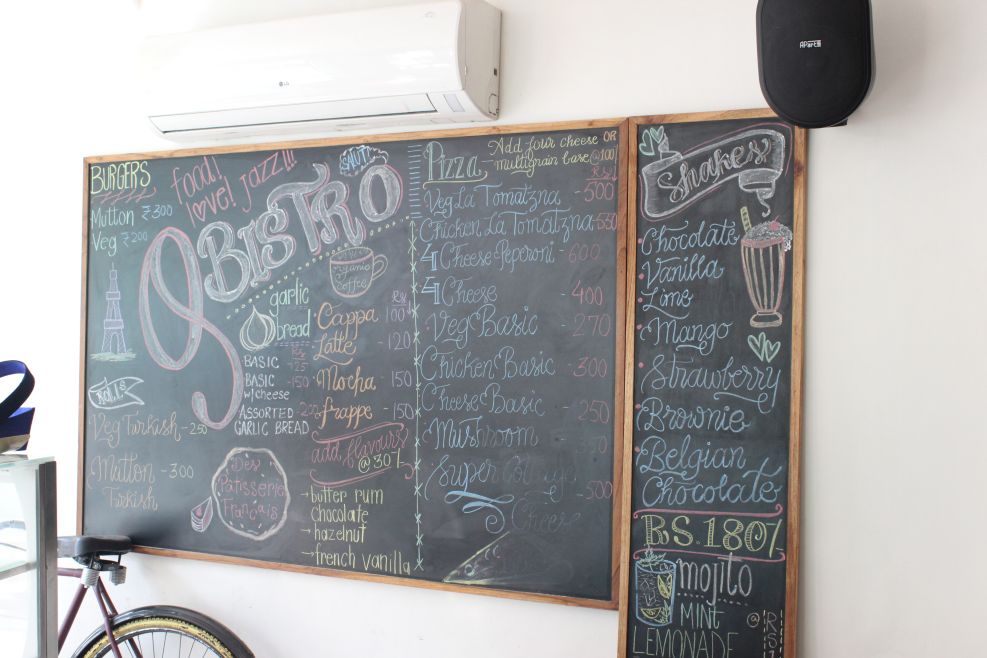 LG
APart
BURGERS
Mutton ₹300
Veg ₹200
food!
love! jazz!!!
BISTRO
SALUT
Organic
Coffee
ROLLS
Veg Turkish - 250
Mutton - 300
Turkish
garlic
bread
Rs
BASIC - 125
BASIC - 150
w/cheese
ASSORTED
GARLIC BREAD
Des
Patisserie
Francais
Cappa 100
Latte 120
Mocha 150
frappe - 150
add flavours
@ 30/-
→ butter rum
chocolate
→ hazelnut
→ french vanilla
Pizza - Add four cheese OR
multigrain base @100/
Veg La Tomatzna - 500
Chicken La Tomatzna - 550
4 Cheese Peperoni - 600
4 Cheese - 400
Veg Basic - 270
Chicken Basic - 300
Cheese Basic - 250
Mushroom
Super
Cheese - 500
Shakes
Chocolate
Vanilla
Lime
Mango
Strawberry
Brownie
Belgian
Chocolate
RS. 180/
mojito
MINT @
LEMONADE